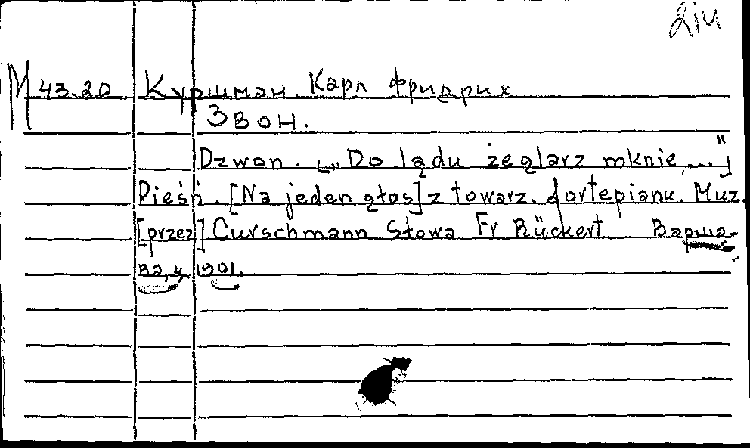 М 43.20 Куршман. Карл Фридрих
Звон.
Dzwon. [„Do lądu żeglarz mknie,..."]
Pieśń. [Na jeden głos] z towarz. fortepianu. Muz.
[przez] Curschmann Słowa Fr Rückert Варша-
ва, 1901.